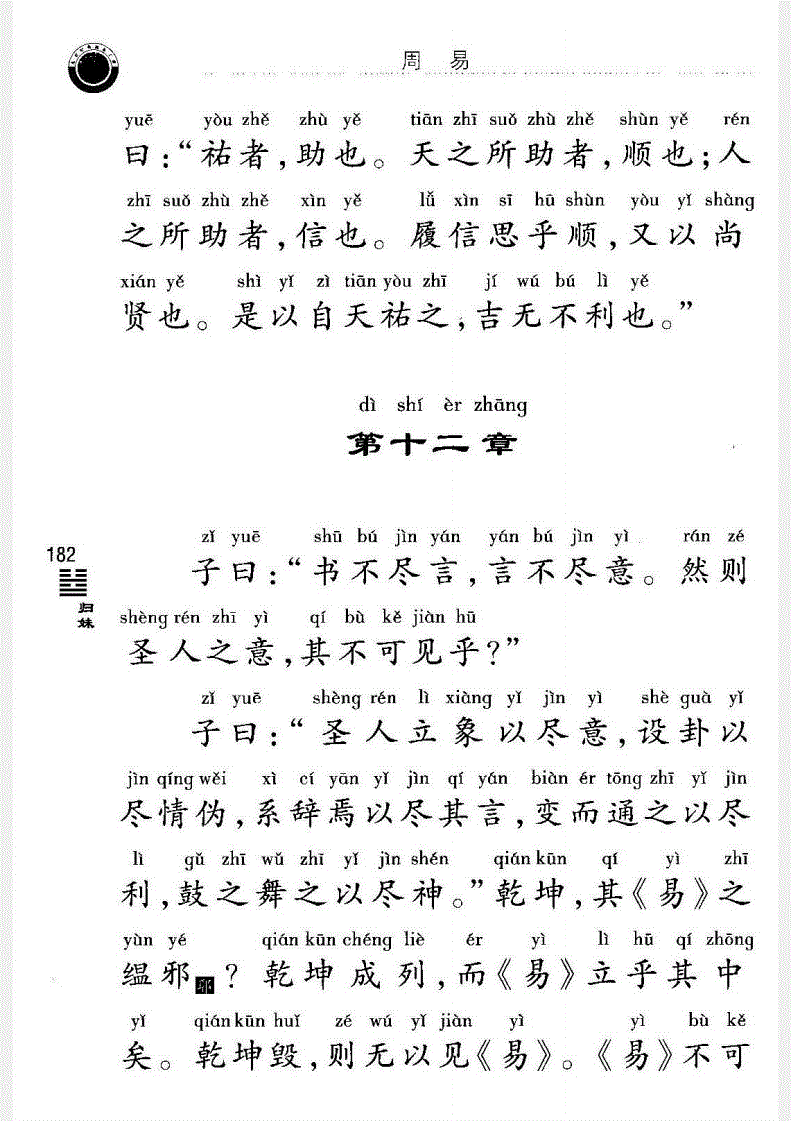 周易
yuē yòu zhě zhù yě tiān zhī suǒ zhù zhě shùn yě rén
曰：“祐者，助也。天之所助者，顺也；人
zhī suǒ zhù zhě xìn yě lǚ xìn sī hū shùn yòu yǐ shàng
之所助者，信也。履信思乎顺，又以尚
xián yě shì yǐ zì tiān yòu zhī jí wú bú lì yě
贤也。是以自天祐之，吉无不利也。”
dì shí èr zhāng
第十二章
zǐ yuē shū bú jìn yán yán bú jìn yì rán zé
子曰：“书不尽言，言不尽意。然则
shèng rén zhī yì qí bù kě jiàn hū
圣人之意，其不可见乎？”
zǐ yuē shèng rén lì xiàng yǐ jìn yì shè guà yǐ
子曰：“圣人立象以尽意，设卦以
jìn qíng wěi xì cí yān yǐ jìn qí yán biàn ér tōng zhī yǐ jìn
尽情伪，系辞焉以尽其言，变而通之以尽
lì gǔ zhī wǔ zhī yǐ jìn shén qián kūn qí yì zhī
利，鼓之舞之以尽神。”乾坤，其《易》之
yùn yé qián kūn chéng liè ér yì lì hū qí zhōng
缊邪耶？乾坤成列，而《易》立乎其中
yǐ qián kūn huǐ zé wú yǐ jiàn yì yì bù kě
矣。乾坤毁，则无以见《易》。《易》不可
182
归妹